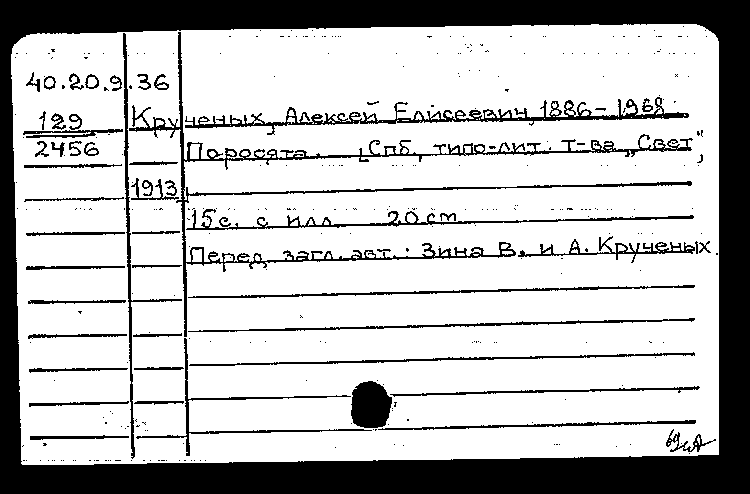 40.20.9.36
129 Крученых, Алексей Елисеевич, 1886-1968
2456 Поросята. [Спб., типо-лит. т-ва „Свет",
1913]
15с. с илл. 20 cm
Перед загл. авт.: Зина В. и А. Крученых.